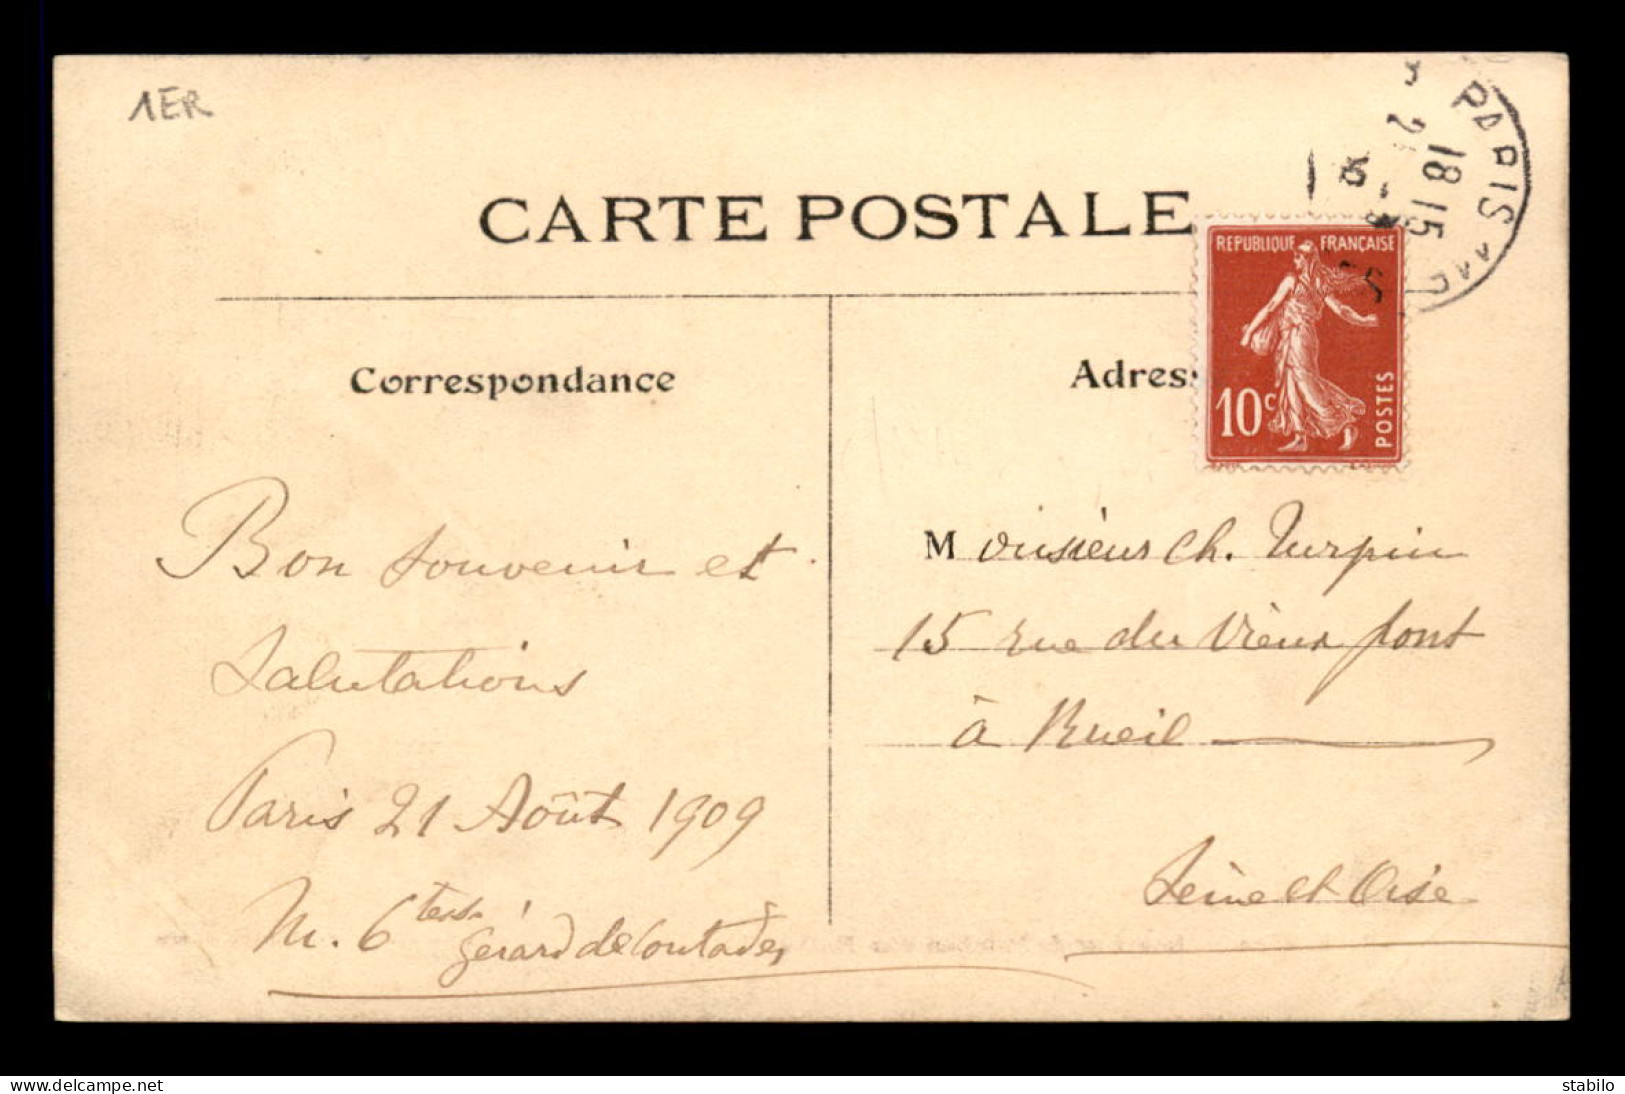 1ER
CARTE POSTALE
PARIS
18 15
REPUBLIQUE FRANÇAISE
10c
POSTES
Correspondance
Adres
Bon souvenir et
Salutations
Paris 21 Août 1909
M. Ctesse
Gérard de Contades
Monsieur Ch. Turpin
15 rue du Vieux pont
à Rueil
Seine et Oise
delcampe.net
stabilo